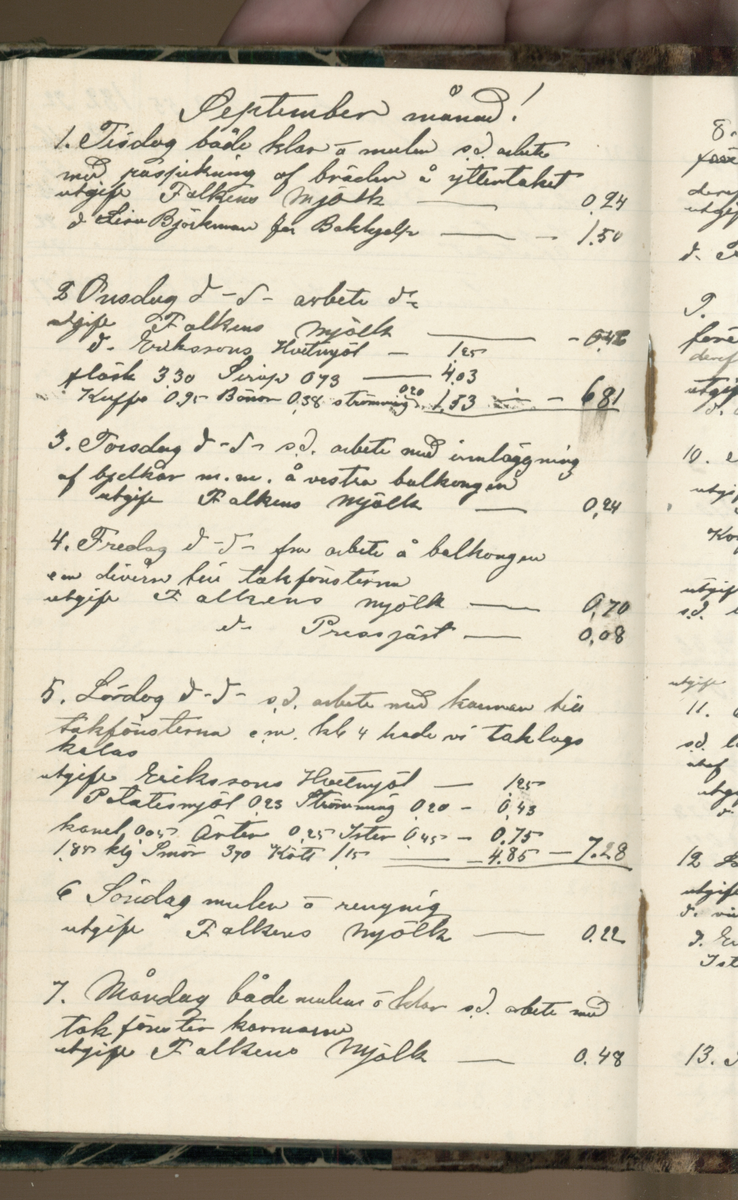 September månad!
1. Tisdag både klar o mulen s.d. arbete
med påspikning af bräder å yttertaket
utgift Falkens Mjölk — 0,24
d Lisa Björkman för Bakhjelp — - 1.50
2 Onsdag d - d - arbete do
utgift Falkens Mjölk — - 0,48
d. Erikssons Hvetmjöl — 1,25
fläsk 3.30 Sirap 0,73 — 4,03
Kaffe 0,95 Bönor 0,38 strömming 0,20 1,53 — - 6 81
3. Torsdag d - d - s.d. arbete med innläggning
af bjelkar m.m. å vestra balkongen
utgift Falkens Mjölk — 0,24
4. Fredag d - d - fm arbete å balkongen
em till takfönsterna
utgift Falkens Mjölk — 0,70
d. Pressjäst — 0,08
5. Lördag d - d - s.d. arbete med karmar till
takfönsterna e.m. kl 4 hade vi taklags
kalas
utgift Erikssons Hvetmjöl — 1,25
Potatesmjöl 0,23 Strömming 0,20 - 0,43
kanel 0,05 Ärter 0,25 Ister 0,45 - 0,75
1,85 kg Smör 3,70 Kött 1,15 — 4.85 - 7.28
6 Söndag mulen o rengnig
utgift Falkens Mjölk — 0.22
7. Måndag både mulen o klar s.d. arbete med
takfönster karmarne
utgift Falkens Mjölk — 0.48
8.
9.
10.
utgift
11.
s.d.
12
utgift
13.